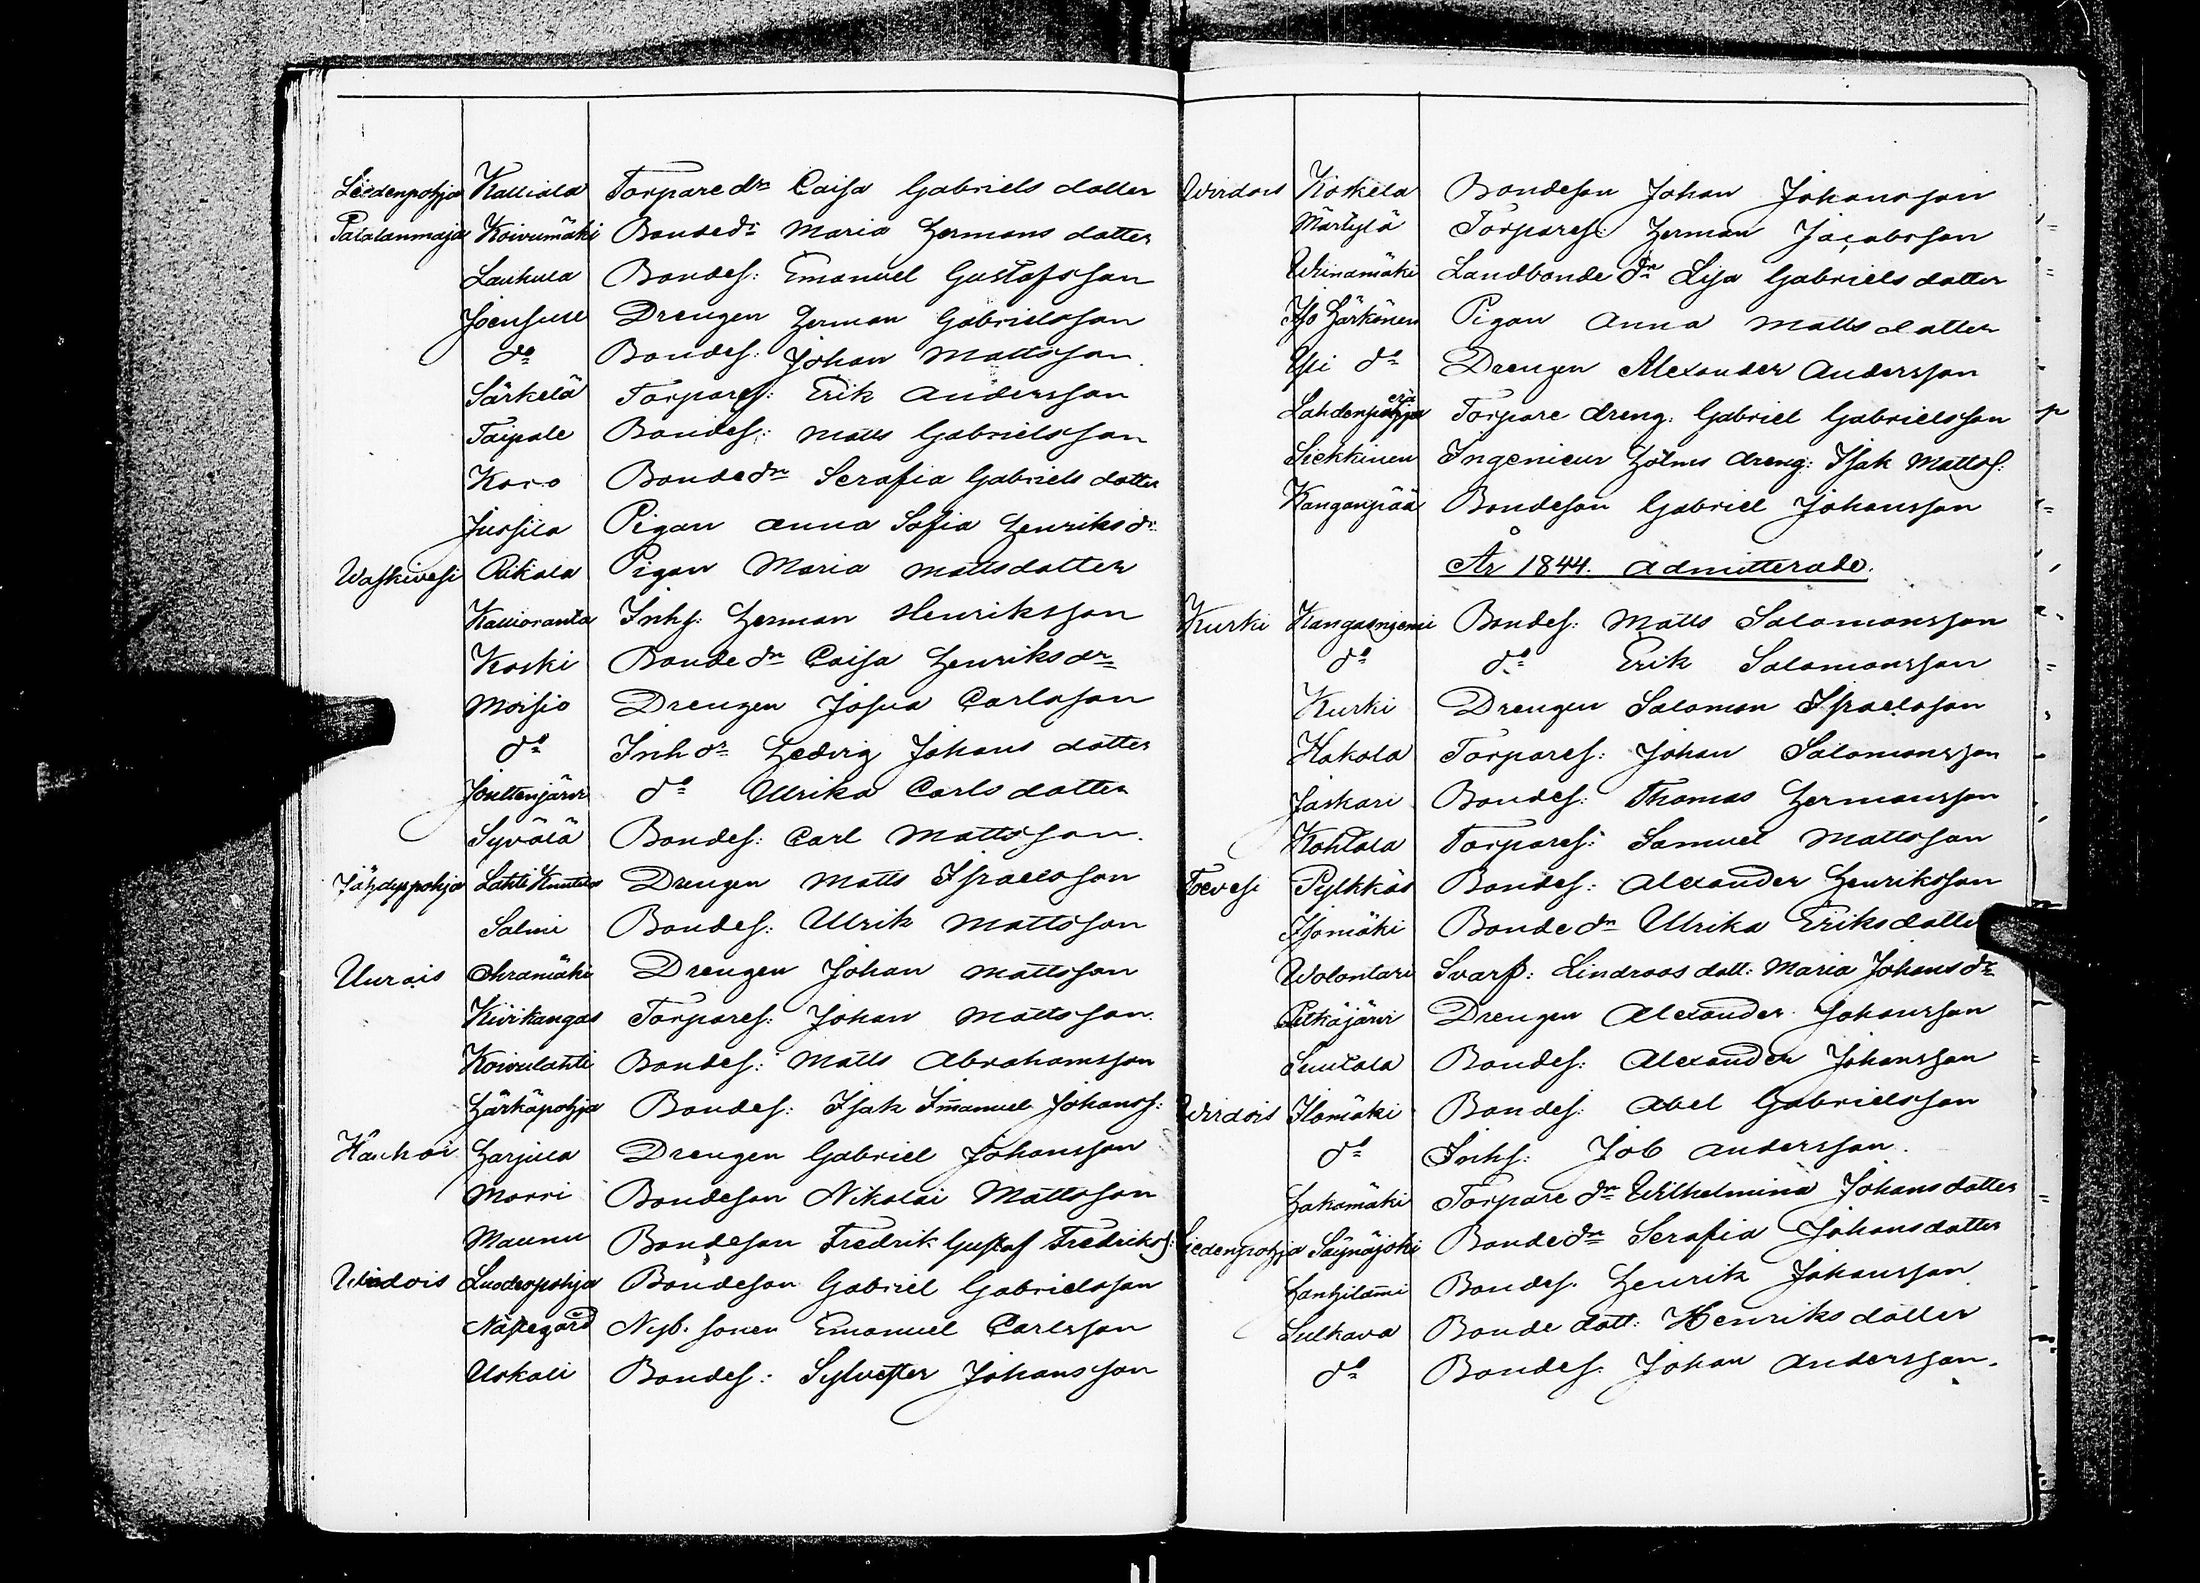 Liedenpohja Kalliala Torpare dr Caisa Gabriels dotter
Patalanmaja Koivumäki Bondedr Maria Hermans dotter
Laukula Bondes: Emanuel Gustafsson
Joensuu Drengen Herman Gabrielsson
do Bondes: Johan Mattsson
Särkelä Torpares: Erik Andersson
Taipale Bondes: Matts Gabrielsson
Koro Bondedr Serafia Gabriels dotter
Jussila Pigan Anna Sofia Henriksdr
Waskivesi Rikala Pigan Maria Mattsdotter
Kallioranta Inhs: Herman Henriksson
Koski Bonde dr Caisa Henriksdr
Moisio Drengen Josua Carlsson
do Inh dr Hedvig Johans dotter
Jouttenjärvi do Ulrika Carls dotter
Syvälä Bondes: Carl Mattsson.
Jähdyspohja Lahti Knuutila Drengen Matts Israelsson
Salmi Bondes: Ulrik Mattsson
Uurais Ahramäki Drengen Johan Mattsson
Kivikangas Torpares: Johan Mattsson.
Koivulahti Bondes: Matts Abrahamsson
Härkäpohja Bondes: Isak Imanuel Johanss:
Hauhoi Harjula Drengen Gabriel Johansson
Morri Bondeson Nikolai Mattsson
Maunu Bondeson Fredrik Gustaf Fredrikss:
Wirdois Luodespohja Bondeson Gabriel Gabrielsson
Näsegård Nyb. sonen Emanuel Carlsson
Uskali Bondes: Sylvester Johansson
Wirdois Koskela Bondeson Johan Johansson
Märtylä Torpares: Herman Jacobsson
Wiinamäki Landbonde dr Lisa Gabriels dotter
Iso Härkönen Pigan Anna Matts dotter
Ysi do Drengen Alexander Andersson
Lahdenperä Torpare dreng. Gabriel Gabrielsson
Siekkinen Ingenieur Holms dreng: Isak Mattss:
Kanganpää Bondeson Gabriel Johansson
År 1844. Admitterade.
Kurki Kangasniemi Bondes: Matts Salomonsson
do do Erik Salomonsson
Kurki Drengen Salomon Israelsson
Hakola Torpares: Johan Salomonsson
Jaskari Bondes: Thomas Hermansson
Kohtala Torpares: Samuel Mattsson
Toevesi Pylkkäs Bondes: Alexander Henriksson
Isomäki Bonde dr Ulrika Eriksdotter
Wolontari Svarf: Lindroos dott: Maria Johansdr
Pitkäjärvi Drengen Alexander Johansson
Suutala Bondes: Alexander Johansson
Wirdois Ilomäki Bondes: Abel Gabrielsson
do Inhs: Job Andersson.
Hakomäki Torpare dr Wilhelmina Johans dotter
Liedenpohja Säynäjoki Bondedr Serafia Johansdotter
Hankilami Bondes. Henrik Johansson
Sulkava Bonde dott: Henriks dotter
do Bondes. Johan Andersson.